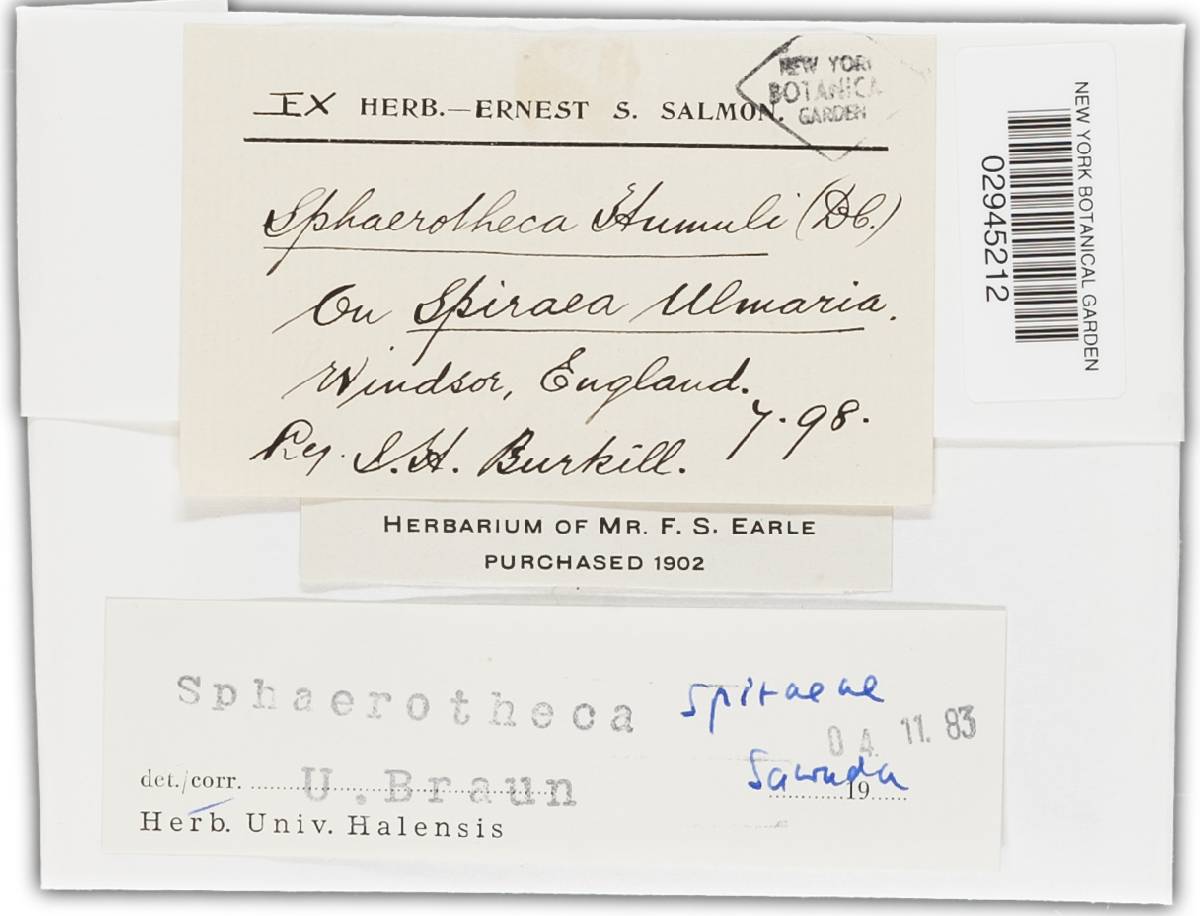 EX HERB.—ERNEST S. SALMON.
NEW YORK
BOTANICA
GARDEN
Sphaerotheca Humuli (DC.)
On Spiraea Ulmaria.
Windsor, England.
7.98.
Leg. I.H. Burkill.
NEW YORK BOTANICAL GARDEN
02945212
HERBARIUM OF MR. F. S. EARLE
PURCHASED 1902
Sphaerotheca spiraeae
Sawada
04. 11. 83
det./corr. U.Braun 19
Herb. Univ. Halensis